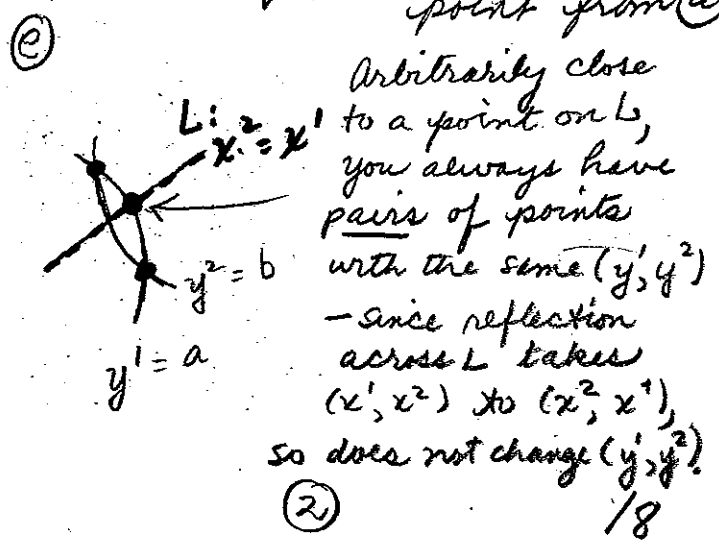 point from (a
(e)
Arbitrarily close
L: x² = x¹
to a point on L,
you always have
pairs of points
with the same (y¹, y²)
y² = b
- since reflection
across L takes
y¹ = a
(x¹, x²) to (x², x¹),
so does not change (y¹, y²).
(2)
/8